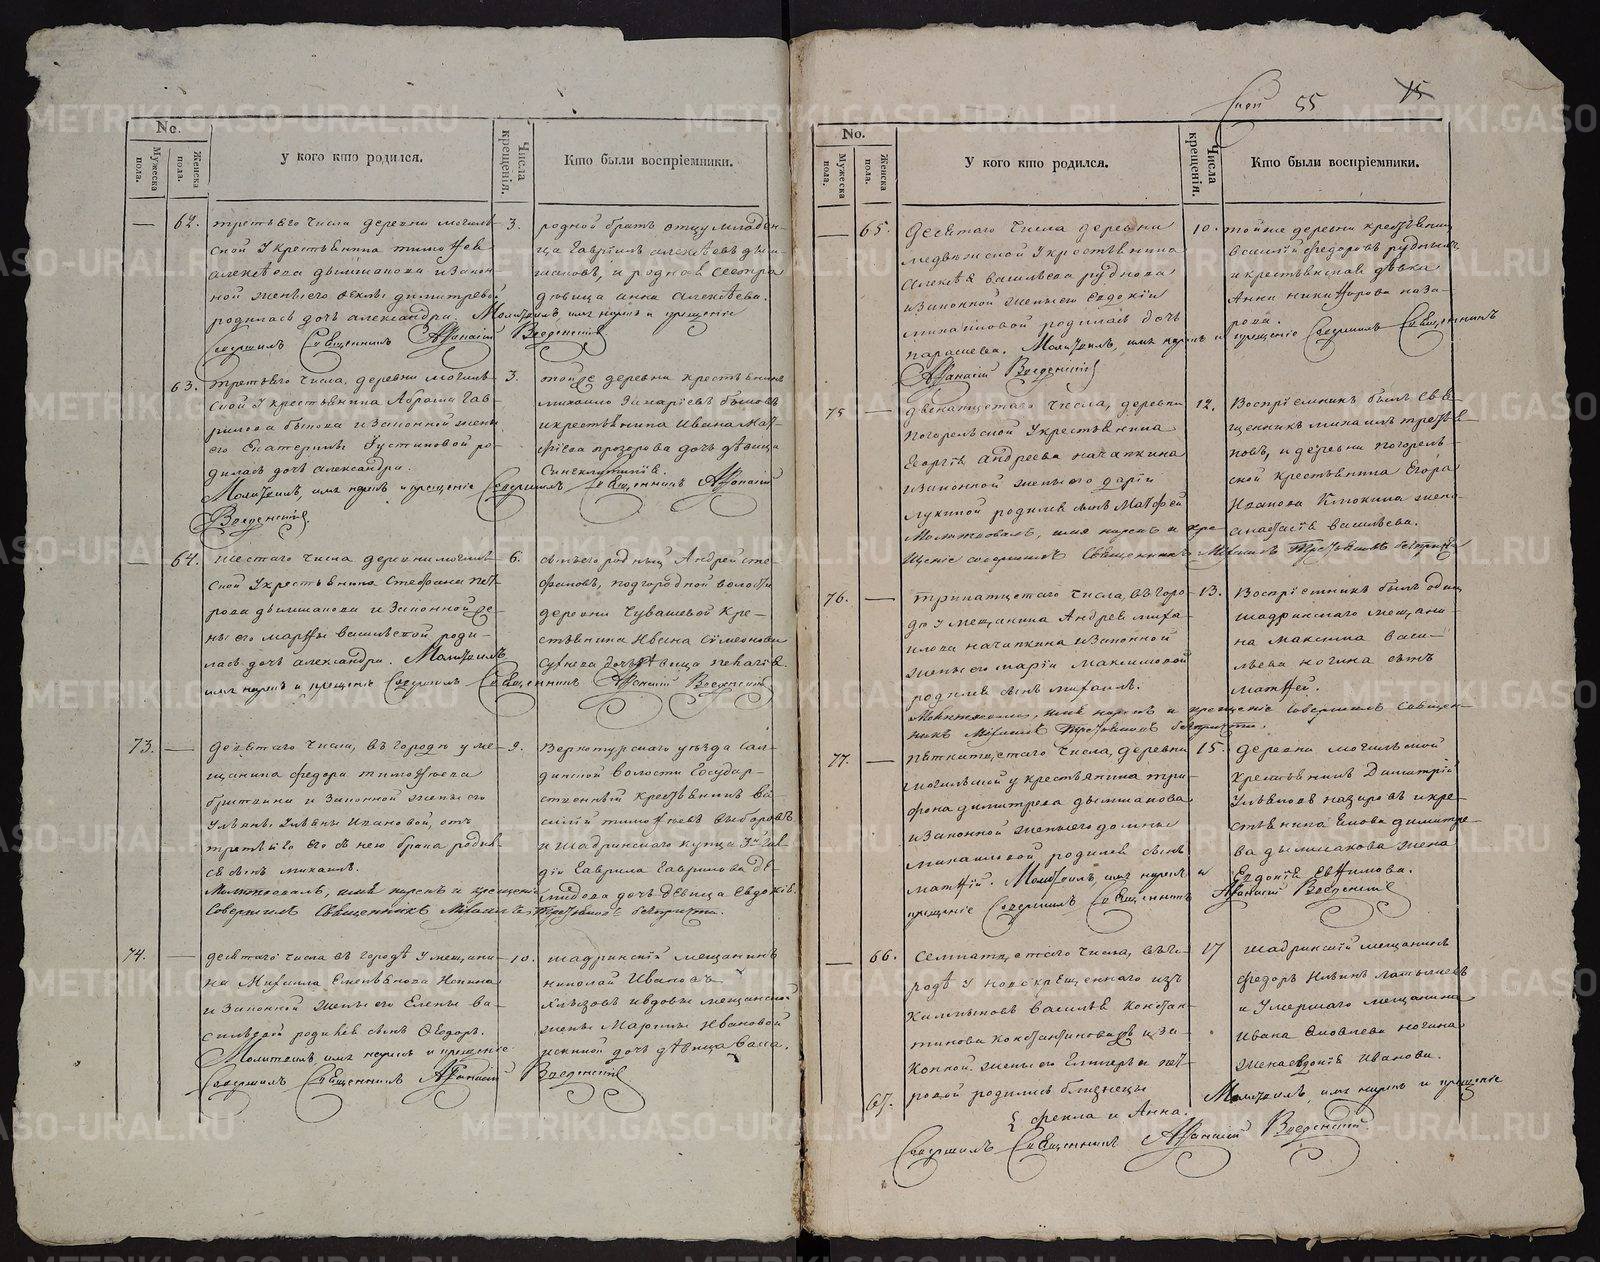 No.
Мужеска пола.
Женска пола.
У кого кто родился.
Числа крещенія.
Кто были воспріемники.
62.
третьяго числа деревни могиль-
ской У крестьянина тимофея
алексѣева дылшакова и закон-
ной жены его
родилась дочь александра. Молитвилъ, имя нарекъ и крещеніе
Совершилъ Священникъ Афанасій Введенскій
3.
родной братъ отцу младен-
ца Гаврiилъ алексѣевъ
и родная сестра
дѣвица анна алексѣева.
63.
третьяго числа, деревни могиль-
ской У крестьянина Абрама Гав-
рилова быкова и законной жены
его Екатерины Густиновой ро-
дилась дочь александра.
Молитвилъ, имя нарекъ и крещеніе Совершилъ Священникъ Афанасій
Введенскій
3.
тойже деревни крестьянинъ
михаило
и крестьянина Ивана Мат-
фѣева прозорова дочь дѣвица
Синклитикія.
64.
шестаго числа деревни могиль-
ской У крестьянина Стефана пет-
рова дылшакова и Законной же-
ны его марфы васильевой роди-
лась дочь александра. Молитвилъ
имя нарекъ и крещеніе Совершилъ Священникъ Афанасій Введенскій
6.
Андрей сте-
фановъ, подгородной волости
деревни Чувашевой кре-
стьянина Ивана Симеонова
дочь дѣвица пелагія.
73.
девятаго числа, въ городѣ у ме-
щанина федора тимофеева
и Законной жены его
Ульяны Ивановой, отъ
третьяго его съ нею брака родил-
ся сынъ михаилъ.
Молитвовалъ, имя нарекъ и крещеніе
Совершилъ Священникъ Михаилъ
9.
Верхотурскаго уѣзда Сал-
динской волости Государ-
ственный крестьянинъ ва-
силій тимофеевъ
и шадринскаго купца 3й гил
діи Гаврила Гаврилова Де-
мидова дочь Девица Евдокія.
74.
девятаго числа въ городѣ У мещани-
на Михаила Емельянова
и Законной жены его Елены ва-
сильевой родился сынъ Феодоръ.
Молитвилъ, имя нарекъ и крещеніе
Совершилъ Священникъ Афанасій Введенскій
10.
шадринскій мещанинъ
николай Ивановъ
и вдовы мещанской
жены Марины Ивановой
дочь дѣвица
55
15
No.
Мужеска пола.
Женска пола.
У кого кто родился.
Числа крещенія.
Кто были воспріемники.
65.
Десятаго числа деревни
медвѣжской У крестьянина
алексѣя васильева руднова
и законной жены его Евдокіи
михаиловой родилась дочь
параскева. Молитвилъ, имя нарекъ и крещеніе Совершилъ Священникъ
Афанасій Введенскій
10.
тойже деревни крестьянинъ
василій федоровъ рудныхъ
и крестьянская дѣвка
Анна никифорова наза-
рова.
75
двенатцетаго числа, деревни
Погорельской У крестьянина
Георгія андреева качапкина
и законной жены его дарiи
лукиной родился сынъ Матфей
Молитвовалъ, имя нарекъ и кре
щеніе совершилъ Священникъ Михаилъ
12.
Воспріемникъ былъ Свя-
щенникъ михаилъ
новъ, и деревни погорель-
ской крестьянина Егора
Иванова Клюкина жена
анастасія васильева.
76.
тринатцетаго числа, въ горо-
дѣ У мещанина Андрея миха-
илова качапкина и законной
жены его маріи Максимовой
родился сынъ михаилъ.
Молитвовалъ, имя нарекъ и крещеніе совершилъ Священ-
никъ Михаилъ
13.
Воспріемникъ былъ одинъ
шадринскаго мещани-
на максима васи-
льева ногина сынъ
матфей.
77.
пятнатцетаго числа, деревни
могильской у крестьянина три-
фона димитрева дылшакова
и законной жены его домны
михаиловой родился сынъ
матфій. Молитвилъ, имя нарекъ и
крещеніе Совершилъ Священникъ Афанасій Введенскій
15.
деревни могильской
крестьянинъ Димитрій
Ульяновъ назаровъ и кре-
стьянина Якова димитре-
ва дылшакова жена
Евдокія Евфимова.
66.
Семнатцетаго числа, въ го-
родѣ У новокрещеннаго изъ
Василья Констан-
тинова Константинова и за-
конной жены его Екатерины пет-
ровой родились близнецы
67.
фекла и Анна.
17
шадринскій мещанинъ
федоръ Ильинъ латышевъ
и Умершаго мещанина
Ивана Яковлева ногина
жена Евдокія Иванова.
Молитвилъ, имя нарекъ и крещеніе
Совершилъ Священникъ Афанасій Введенскій
METRIKI.GASO-URAL.RU